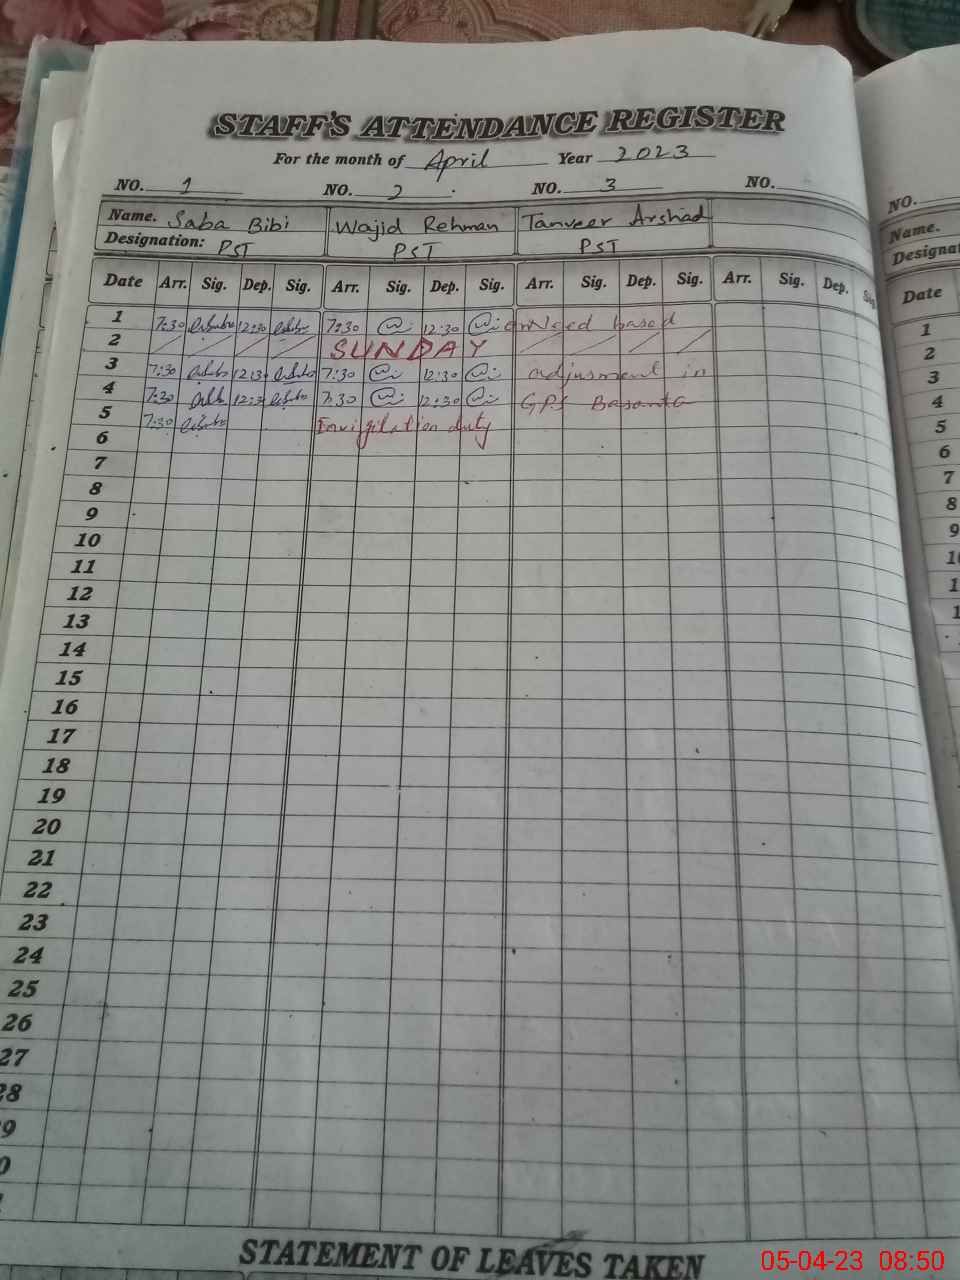 STAFF'S ATTENDANCE REGISTER
For the month of April Year 2023
NO. 1 NO. 2 NO. 3 NO. NO.
Name. Saba Bibi Wajid Rehman Tanveer Arshad Name.
Designation: PST PST PST
Date Arr. Sig. Dep. Sig. Arr. Sig. Dep. Sig. Arr. Sig. Dep. Sig. Arr. Sig. Dep. Date
1 7:30 12:30 7:30 12:30 Need based 1
2 SUNDAY 2
3 7:30 12:30 7:30 12:30 adjusment in 3
4 7:30 12:3 7:30 12:30 GPS Basanta 4
5 7:30 Invigilation duty 5
6 6
7 7
8 8
9 9
10
11
12
13
14
15
16
17
18
19
20
21
22
23
24
25
26
27
STATEMENT OF LEAVES TAKEN
05-04-23 08:50